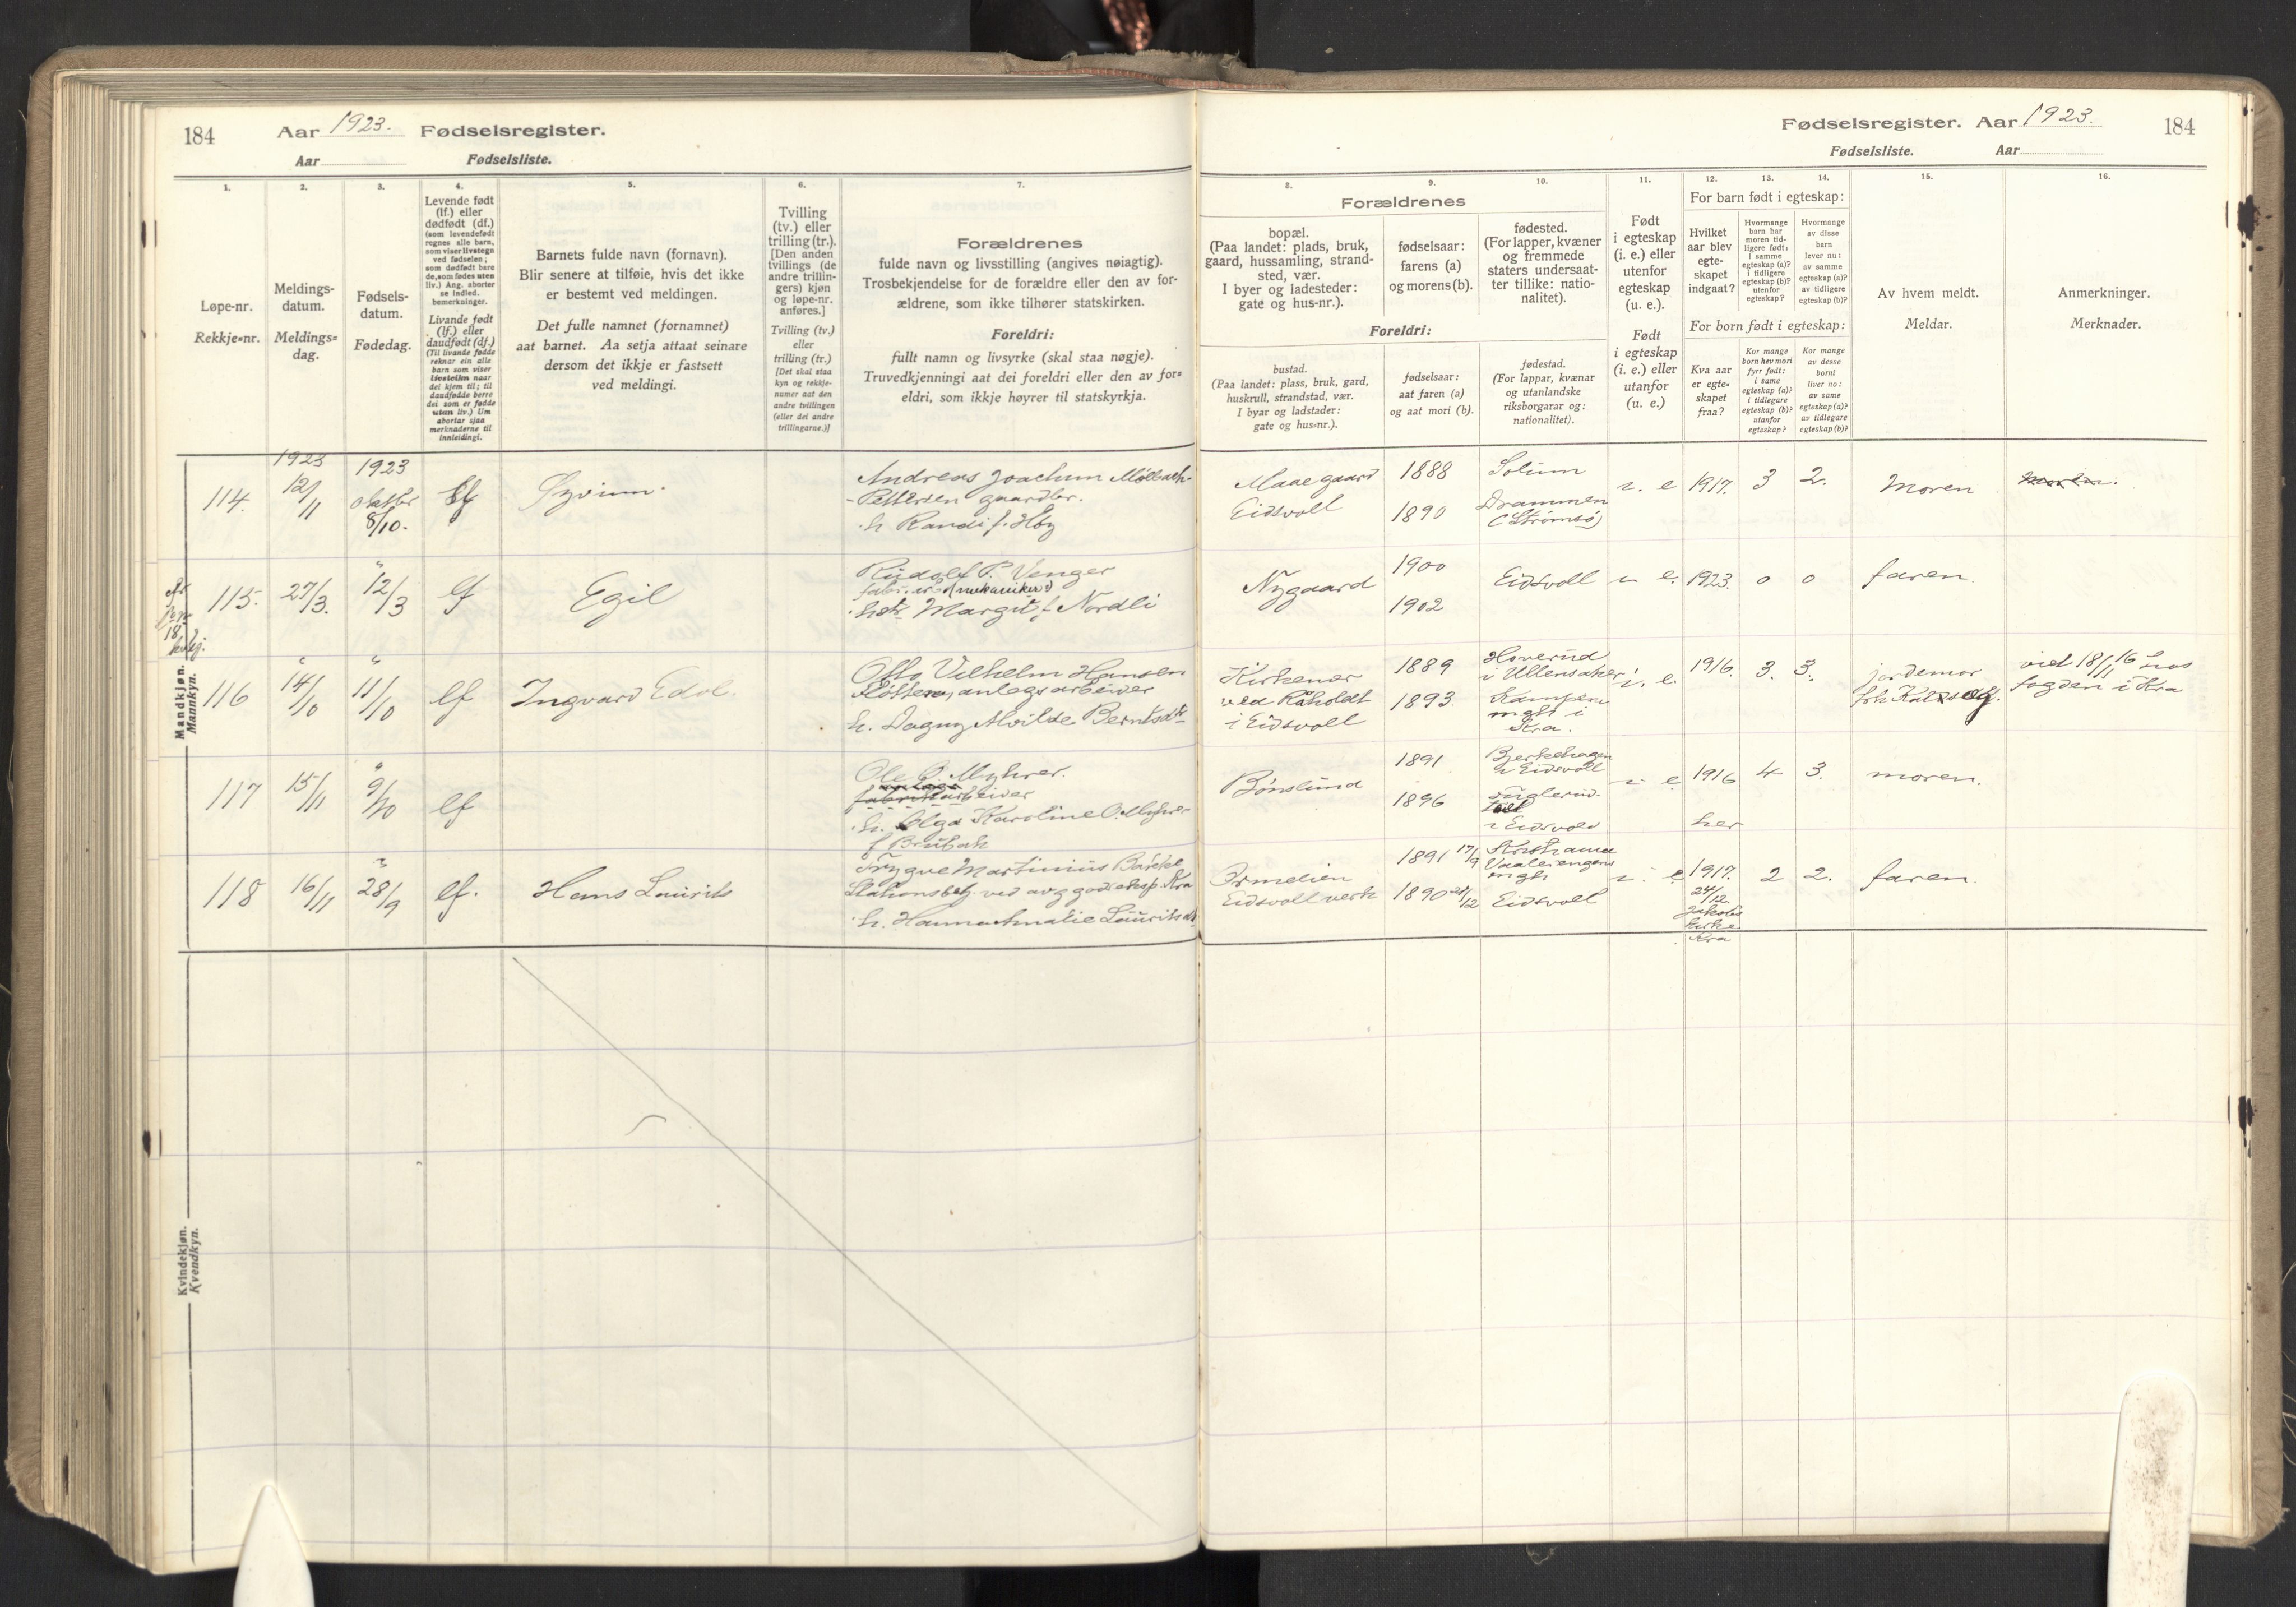 184
Aar 1923. Fødselsregister.
Aar Fødselsliste.
1.
Løpe-nr.
Rekkje-nr.
2.
Meldings-
datum.
Meldings-
dag.
3.
Fødsels-
datum.
Fødedag.
4.
Levende født
(lf.) eller
dødfødt (df.)
(som levendefødt
regnes alle barn,
som viser livstegn
ved fødselen;
som dødfødt bere
de, som fødes uten
liv.) Ang. aborter
se indled.
bemerkninger.
Livande født
(lf.) eller
daudfødt (df.)
(Til livande fødde
reknar ein alle
barn som viser
livsteikn naar
dei kjem til; til
daudfødde berre
dei som er fødde
utan liv.) Um
abortar sjaa
merknaderne til
innleidingi.
5.
Barnets fulde navn (fornavn).
Blir senere at tilføie, hvis det ikke
er bestemt ved meldingen.
Det fulle namnet (fornamnet)
aat barnet. Aa setja attaat seinare
dersom det ikkje er fastsett
ved meldingi.
6.
Tvilling
(tv.) eller
trilling (tr.).
[Den anden
tvillings (de
andre trillin-
gers) kjøn
og løpe-nr.
anføres.]
Tvilling (tv.)
eller
trilling (tr.)
[Det skal staa
kyn og rekkje-
numer aat den
andre tvillingen
(eller dei andre
trillingarne.)]
7.
Forældrenes
fulde navn og livsstilling (angives nøiagtig).
Trosbekjendelse for de forældre eller den av for-
ældrene, som ikke tilhører statskirken.
Foreldri:
fullt namn og livsyrke (skal staa nøgje).
Truvedkjenningi aat dei foreldri eller den av for-
eldri, som ikkje høyrer til statskyrkja.
Mandkjøn.
Mannkyn.
1923
114.
12/11
1923
oktbr
8/10.
lf
Øyvinn.
Andreas Joachum Møllbach-
-Pettersen gaardbr.
h. Randi f. Høy
115.
27/3.
"
12/3
lf
Egil
Rudolf P. Venger
(mekaniker)
Margit f. Nordli
116
14/10
"
11/10
lf
Ingvard Edol.
Otto Vilhelm Hansen
anlegsarbeider
h. Dagny Alvilde Berntsdtr
117
15/11
"
9/10
lf
Ole O. Myhrer.
fabrikarbeider
h. Olga Karoline O. Myhrer
f Brubak
118
16/11
"
28/9
lf.
Hans Laurits
Trygve Martinius
Stationsbetj. ved godseksp. Kra
h. Hanna Amalie Lauritsdt
Kvindekjøn.
Kvendkyn.
Fødselsregister. Aar 1923.
184
Fødselsliste. Aar
Forældrenes
8.
bopæl.
(Paa landet: plads, bruk,
gaard, hussamling, strand-
sted, vær.
I byer og ladesteder:
gate og hus-nr.).
9.
fødselsaar:
farens (a)
og morens (b).
10.
fødested.
(For lapper, kvæner
og fremmede
staters undersaat-
ter tillike: natio-
nalitet).
Foreldri:
bustad.
(Paa landet: plass, bruk, gard,
huskrull, strandstad, vær.
I byar og ladstader:
gate og hus-nr.).
fødselsaar:
aat faren (a)
og aat mori (b).
fødestad.
(For lappar, kvænar
og utanlandske
riksborgarar og:
nationalitet).
11.
Født
i egteskap
(i. e.) eller
utenfor
egteskap
(u. e.).
Født
i egteskap
(i. e.) eller
utanfor
(u. e.)
For barn født i egteskap:
12.
Hvilket
aar blev
egte-
skapet
indgaat?
13.
Hvormange
barn har
moren tid-
ligere født:
i samme
egteskap (a)?
i tidligere
egteskap (b)?
utenfor
egteskap?
14.
Hvormange
av disse
barn
lever nu:
av samme
egteskap (a)?
av tidligere
egteskap (b)?
For born født i egteskap:
Kva aar
er egte-
skapet
fraa?
Kor mange
born hev mori
fyrr født:
i same
egteskap (a)?
i tidlegare
egteskap (b)?
utanfor
egteskap?
Kor mange
av desse
borni
liver no:
av same
egteskap (a)?
av tidlegare
egteskap (b)?
15.
Av hvem meldt.
Meldar.
16.
Anmerkninger.
Merknader.
Maaegaard
Eidsvoll
1888
1890
Solum
Drammen
(Strømsø)
i. e
1917.
3
2.
Moren
Nygaard
1900
1902
Eidsvoll
i. e.
1923.
0
0
faren.
Kirkeenær
ved Råholdt
i Eidsvoll
1889
1893.
Hoverud
i Ullensaker
Kampen
mght i
Kra.
i. e.
1916.
3.
3.
jordemor
vied 18/1 16 hos
fogden i Kra
Bønslund
1891
1896
i Eidsvoll
Fuglerud.
i Eidsvold
i. e
1916
her
4
3.
moren.
Ormelien
Eidsvollverk
1891 17/9
1890 21/12
Kristiania
Vaalerengens
mght
Eidsvoll
i. e.
1917.
24/12.
Jakobs
kirke
Kra
2
2.
faren.